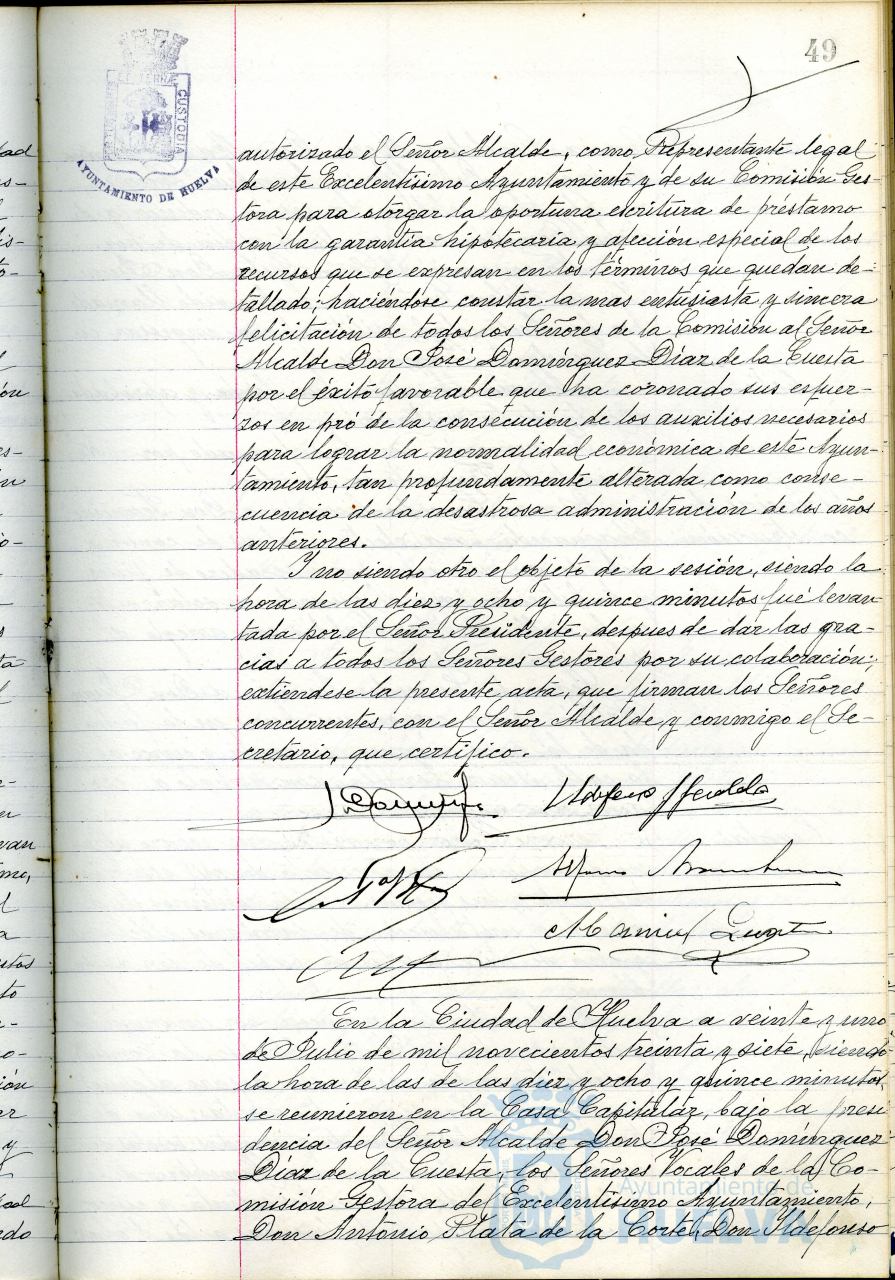 49
CUSTODIA
AYUNTAMIENTO DE HUELVA
autorizado el Señor Alcalde, como Representante legal
de este Excelentísimo Ayuntamiento y de su Comisión Ges-
tora para otorgar la oportuna escritura de préstamo
con la garantía hipotecaria y afección especial de los
recursos que se expresan en los términos que quedan de-
tallado; haciéndose constar la mas entusiasta y sincera
felicitación de todos los Señores de la Comisión al Señor
Alcalde Don José Domínguez Díaz de la Cuesta
por el éxito favorable que ha coronado sus esfuer-
zos en pró de la consecución de los auxilios necesarios
para lograr la normalidad económica de este Ayun-
tamiento, tan profundamente alterada como conse-
cuencia de la desastrosa administración de los años
anteriores.
Y no siendo otro el objeto de la sesión, siendo la
hora de las diez y ocho y quince minutos fué levan
tada por el Señor Presidente, despues de dar las gra-
cias a todos los Señores Gestores por su colaboración;
extiendese la presente acta, que firman los Señores
concurrentes, con el Señor Alcalde y conmigo el Se-
cretario, que certifico.
En la Ciudad de Huelva a veinte y uno
de Julio de mil novecientos treinta y siete, siendo
la hora de las de las diez y ocho y quince minutos,
se reunieron en la Casa Capitular, bajo la presi
dencia del Señor Alcalde Don José Domínguez
Díaz de la Cuesta, los Señores Vocales de la Co-
misión Gestora del Excelentísimo Ayuntamiento,
Don Antonio Plata de la Corte, Don Ildefonso
Ayuntamiento de
HUELVA